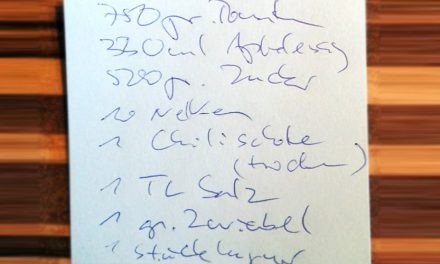 750 gr.
330 ml Apfelessig
500 gr. Zucker
10 Nelken
1 Chilischote
(trocken)
1 TL Salz
1 gr. Zwiebel
1 Stück Ingwer